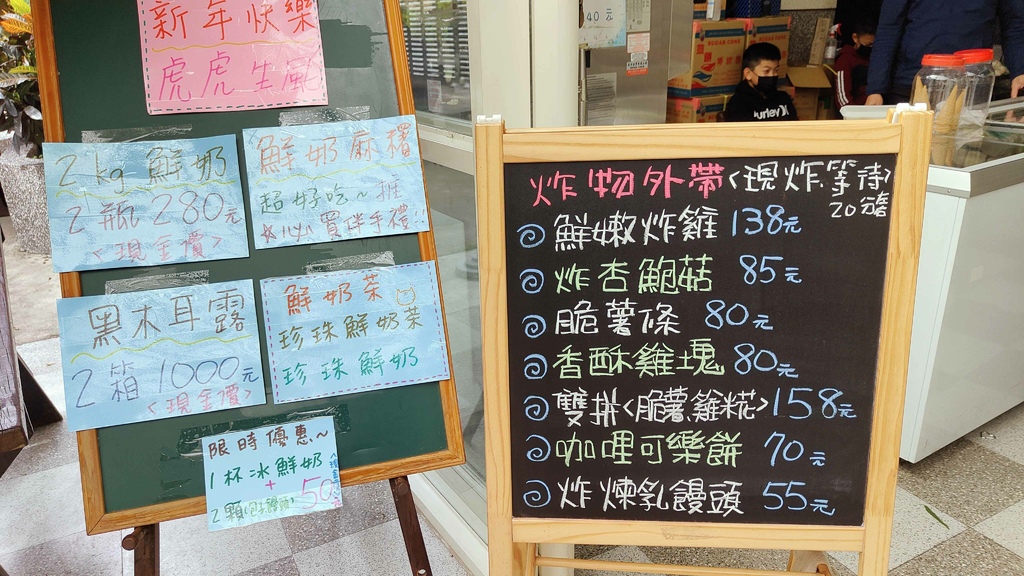 新年快樂
虎虎生風
2kg 鮮奶
2瓶280元
<現金價>
鮮奶麻糬
超好吃~推
必買伴手禮!!
黑木耳露
2箱 1000元
<現金價>
鮮奶茶
珍珠鮮奶茶
珍珠鮮奶
限時優惠~
1杯冰鮮奶
+
2顆 50
40元
Hurley
炸物外帶<現炸等待>
20分鐘
鮮嫩炸雞 138元
炸杏鮑菇 85元
脆薯條 80元
香酥雞塊 80元
雙拼<脆薯.雞柳> 158元
咖哩可樂餅 70元
炸煉乳饅頭 55元